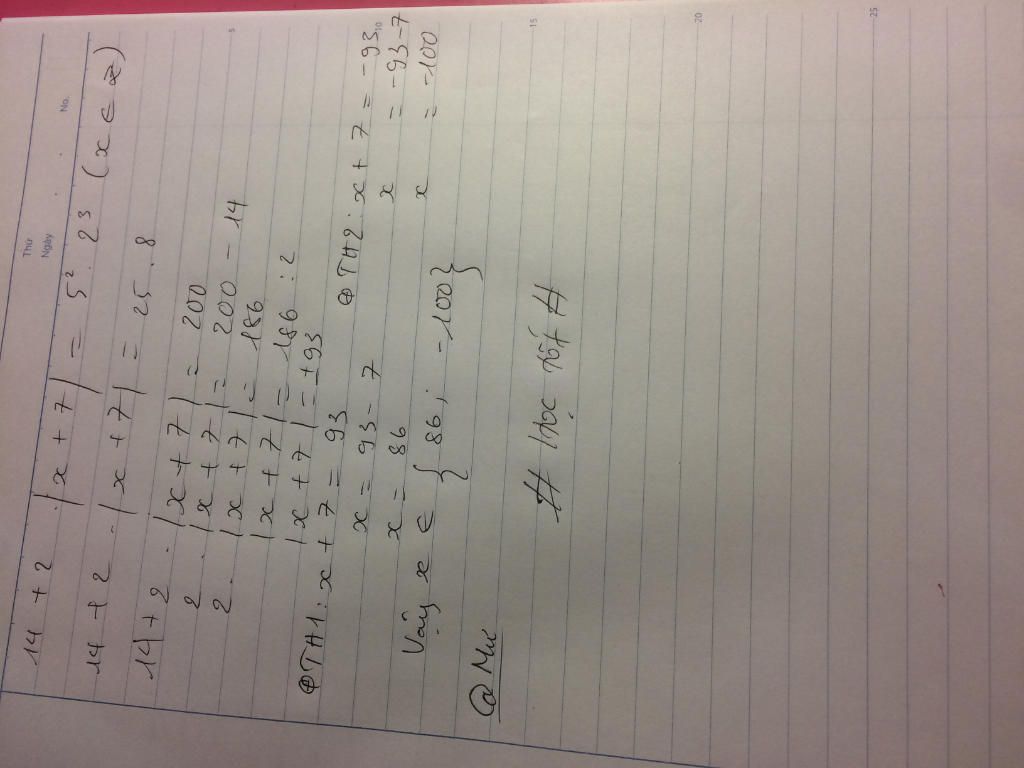 Thứ
Ngày
No.
14 + 2 . |x + 7| = 5² . 2³ (x ∈ Z)
14 + 2 . |x + 7| = 25 . 8
14 + 2 . |x + 7| = 200
2 . |x + 7| = 200 - 14
2 . |x + 7| = 186
|x + 7| = 186 : 2
|x + 7| = ±93
⊕ TH1: x + 7 = 93 ⊕ TH2: x + 7 = -93
x = 93 - 7 x = -93 - 7
x = 86 x = -100
Vậy x ∈ {86; -100}
@Mun
# Học tốt #
5
10
15
20
25